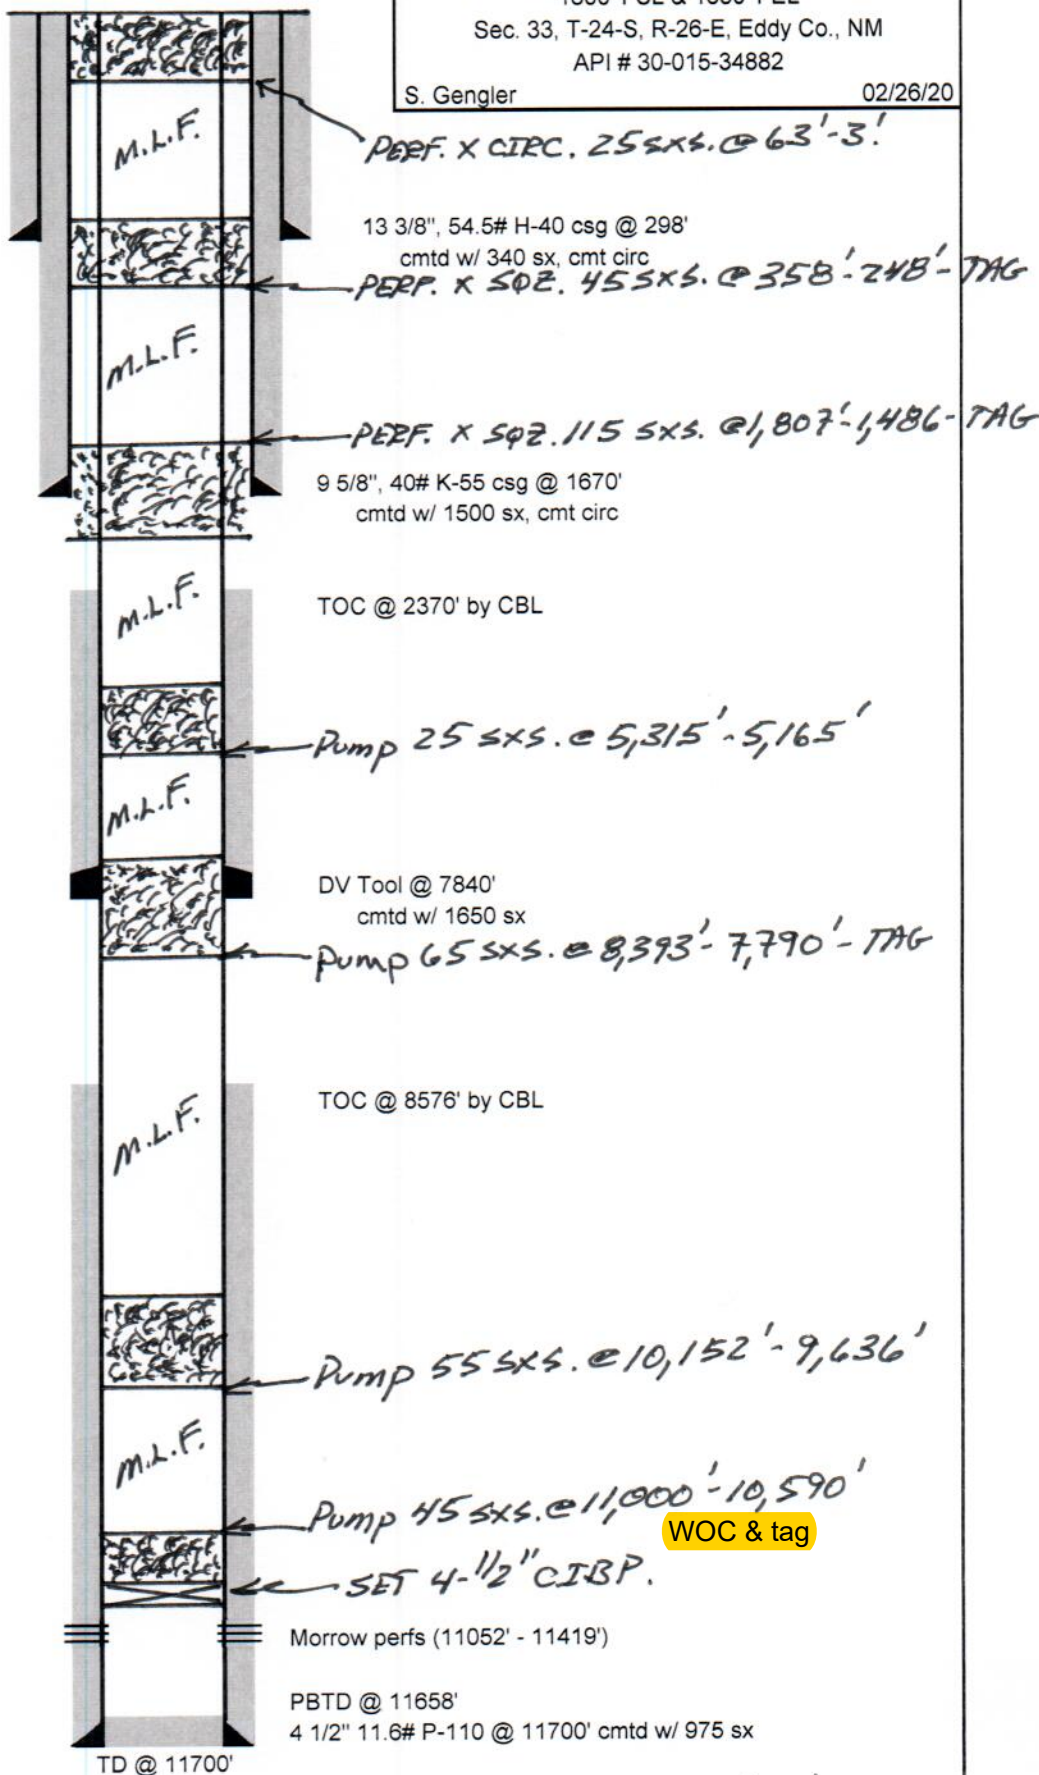 Sec. 33, T-24-S, R-26-E, Eddy Co., NM
API # 30-015-34882
S. Gengler 02/26/20
M.L.F.
PERF. X CIRC. 25 SXS. @ 63'-3'.
13 3/8", 54.5# H-40 csg @ 298'
cmtd w/ 340 sx, cmt circ
PERF. X SQZ. 45 SXS. @ 358'-248'- TAG
M.L.F.
PERF. X SQZ. 115 SXS. @ 1,807'-1,486- TAG
9 5/8", 40# K-55 csg @ 1670'
cmtd w/ 1500 sx, cmt circ
M.L.F.
TOC @ 2370' by CBL
Pump 25 SXS. @ 5,315'-5,165'
M.L.F.
DV Tool @ 7840'
cmtd w/ 1650 sx
Pump 65 SXS. @ 8,393'-7,790'- TAG
TOC @ 8576' by CBL
M.L.F.
Pump 55 SXS. @ 10,152'-9,636'
M.L.F.
Pump 45 SXS. @ 11,000'-10,590'
WOC & tag
SET 4-1/2" CIBP.
Morrow perfs (11052' - 11419')
PBTD @ 11658'
4 1/2" 11.6# P-110 @ 11700' cmtd w/ 975 sx
TD @ 11700'